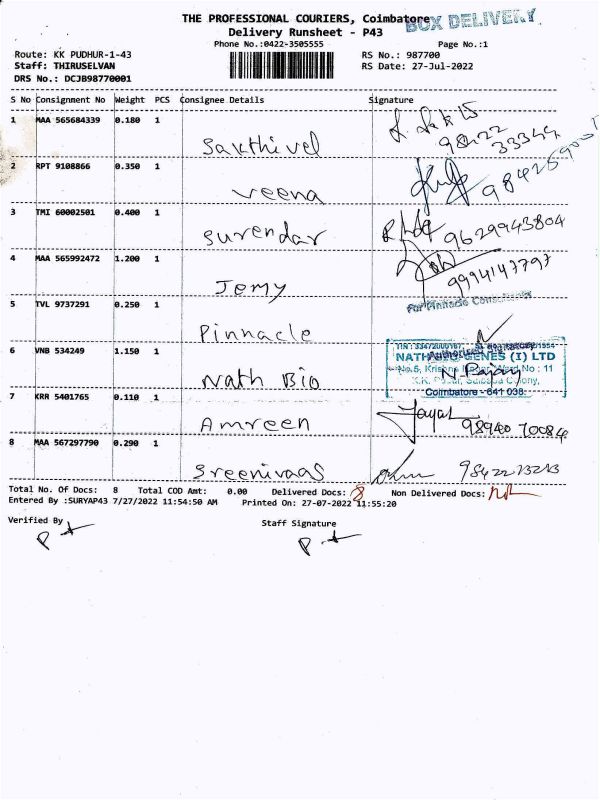 THE PROFESSIONAL COURIERS, Coimbatore
BOX DELIVERY
Delivery Runsheet - P43
Phone No.:0422-3505555
Page No.:1
Route: KK PUDHUR-1-43
RS No.: 987700
Staff: THIRUSELVAN
RS Date: 27-Jul-2022
DRS No.: DCJB98770001
S No Consignment No Weight PCS Consignee Details Signature
1 MAA 565684339 0.180 1
Sakthivel
98422 33344
2 RPT 9108866 0.350 1
Veena
3 TMI 60002501 0.400 1
Surendar 9629943804
4 MAA 565992472 1.200 1
Jemy 9994147797
5 TVL 9737291 0.250 1
For Pinnacle Consultants
Pinnacle
Authorised Signatory
6 VNB 534249 1.150 1
NATH BIO-GENES (I) LTD
No.5, Krishna Ward No : 11
Nath Bio
Colony,
Coimbatore - 641 038.
7 KRR 5401765 0.110 1
Amreen 98940 70084
8 MAA 567297790 0.290 1
Sreenivaas 9842213213
Total No. Of Docs: 8 Total COD Amt: 0.00 Delivered Docs: 8 Non Delivered Docs: Nil
Entered By :SURYAP43 7/27/2022 11:54:50 AM Printed On: 27-07-2022 11:55:20
Verified By Staff Signature